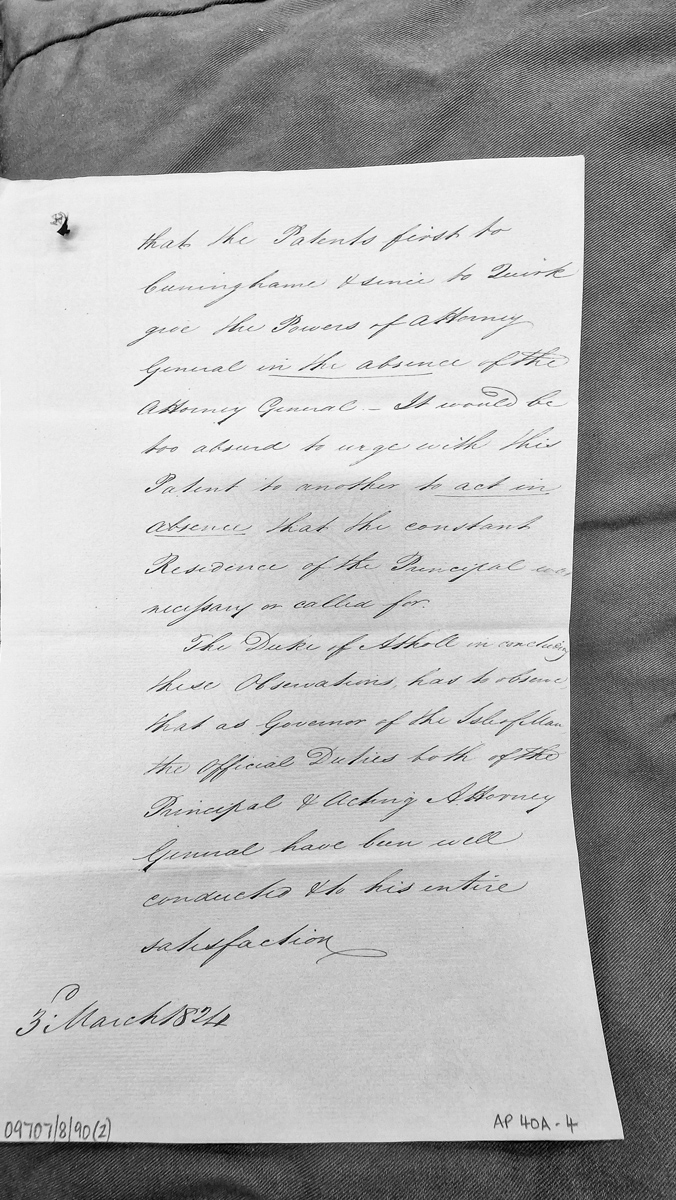 that the Patents first to
Cuninghame & since to Quirk
give the Powers of Attorney
General in the absence of the
Attorney General – It would be
too absurd to urge with this
Patent to another to act in
absence that the constant
Residence of the Principal was
necessary or called for.
The Duke of Atholl in concluding
these Observations, has to observe,
that as Governor of the Isle of Man
the Official Duties both of the
Principal & Acting Attorney
General have been well
conducted & to his entire
satisfaction
3d March 1824
09707/8/90(2)
AP 40A - 4